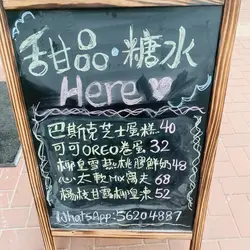 甜品·糖水
Here
巴斯克芝士蛋糕 40
可可OREO卷蛋 32
椰皇雪葩桃膠鮮奶 48
心太軟MIX窩夫 68
楊枝甘露椰皇凍 52
WhatsApp:56204887